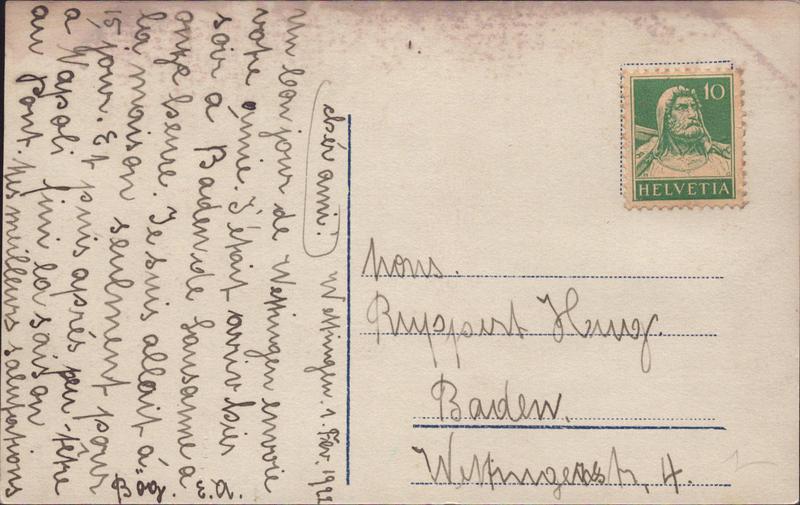 Wettingen. 1 Fev. 1922
chér ami!
Un bon jour de Wettingen envoie
votre amie. J'était arriv hier
soir a Baden de Lausanne a
onze heure. Je suis allait á
la maison seulment pour
15 jour. Et puis aprés peu-tètre
a Napoli fini la saison
au Pont. Mes meilleurs salutations
E.A.
10
HELVETIA
Mons.
Ruppert Hug.
Baden.
Wettingerstr. 4.